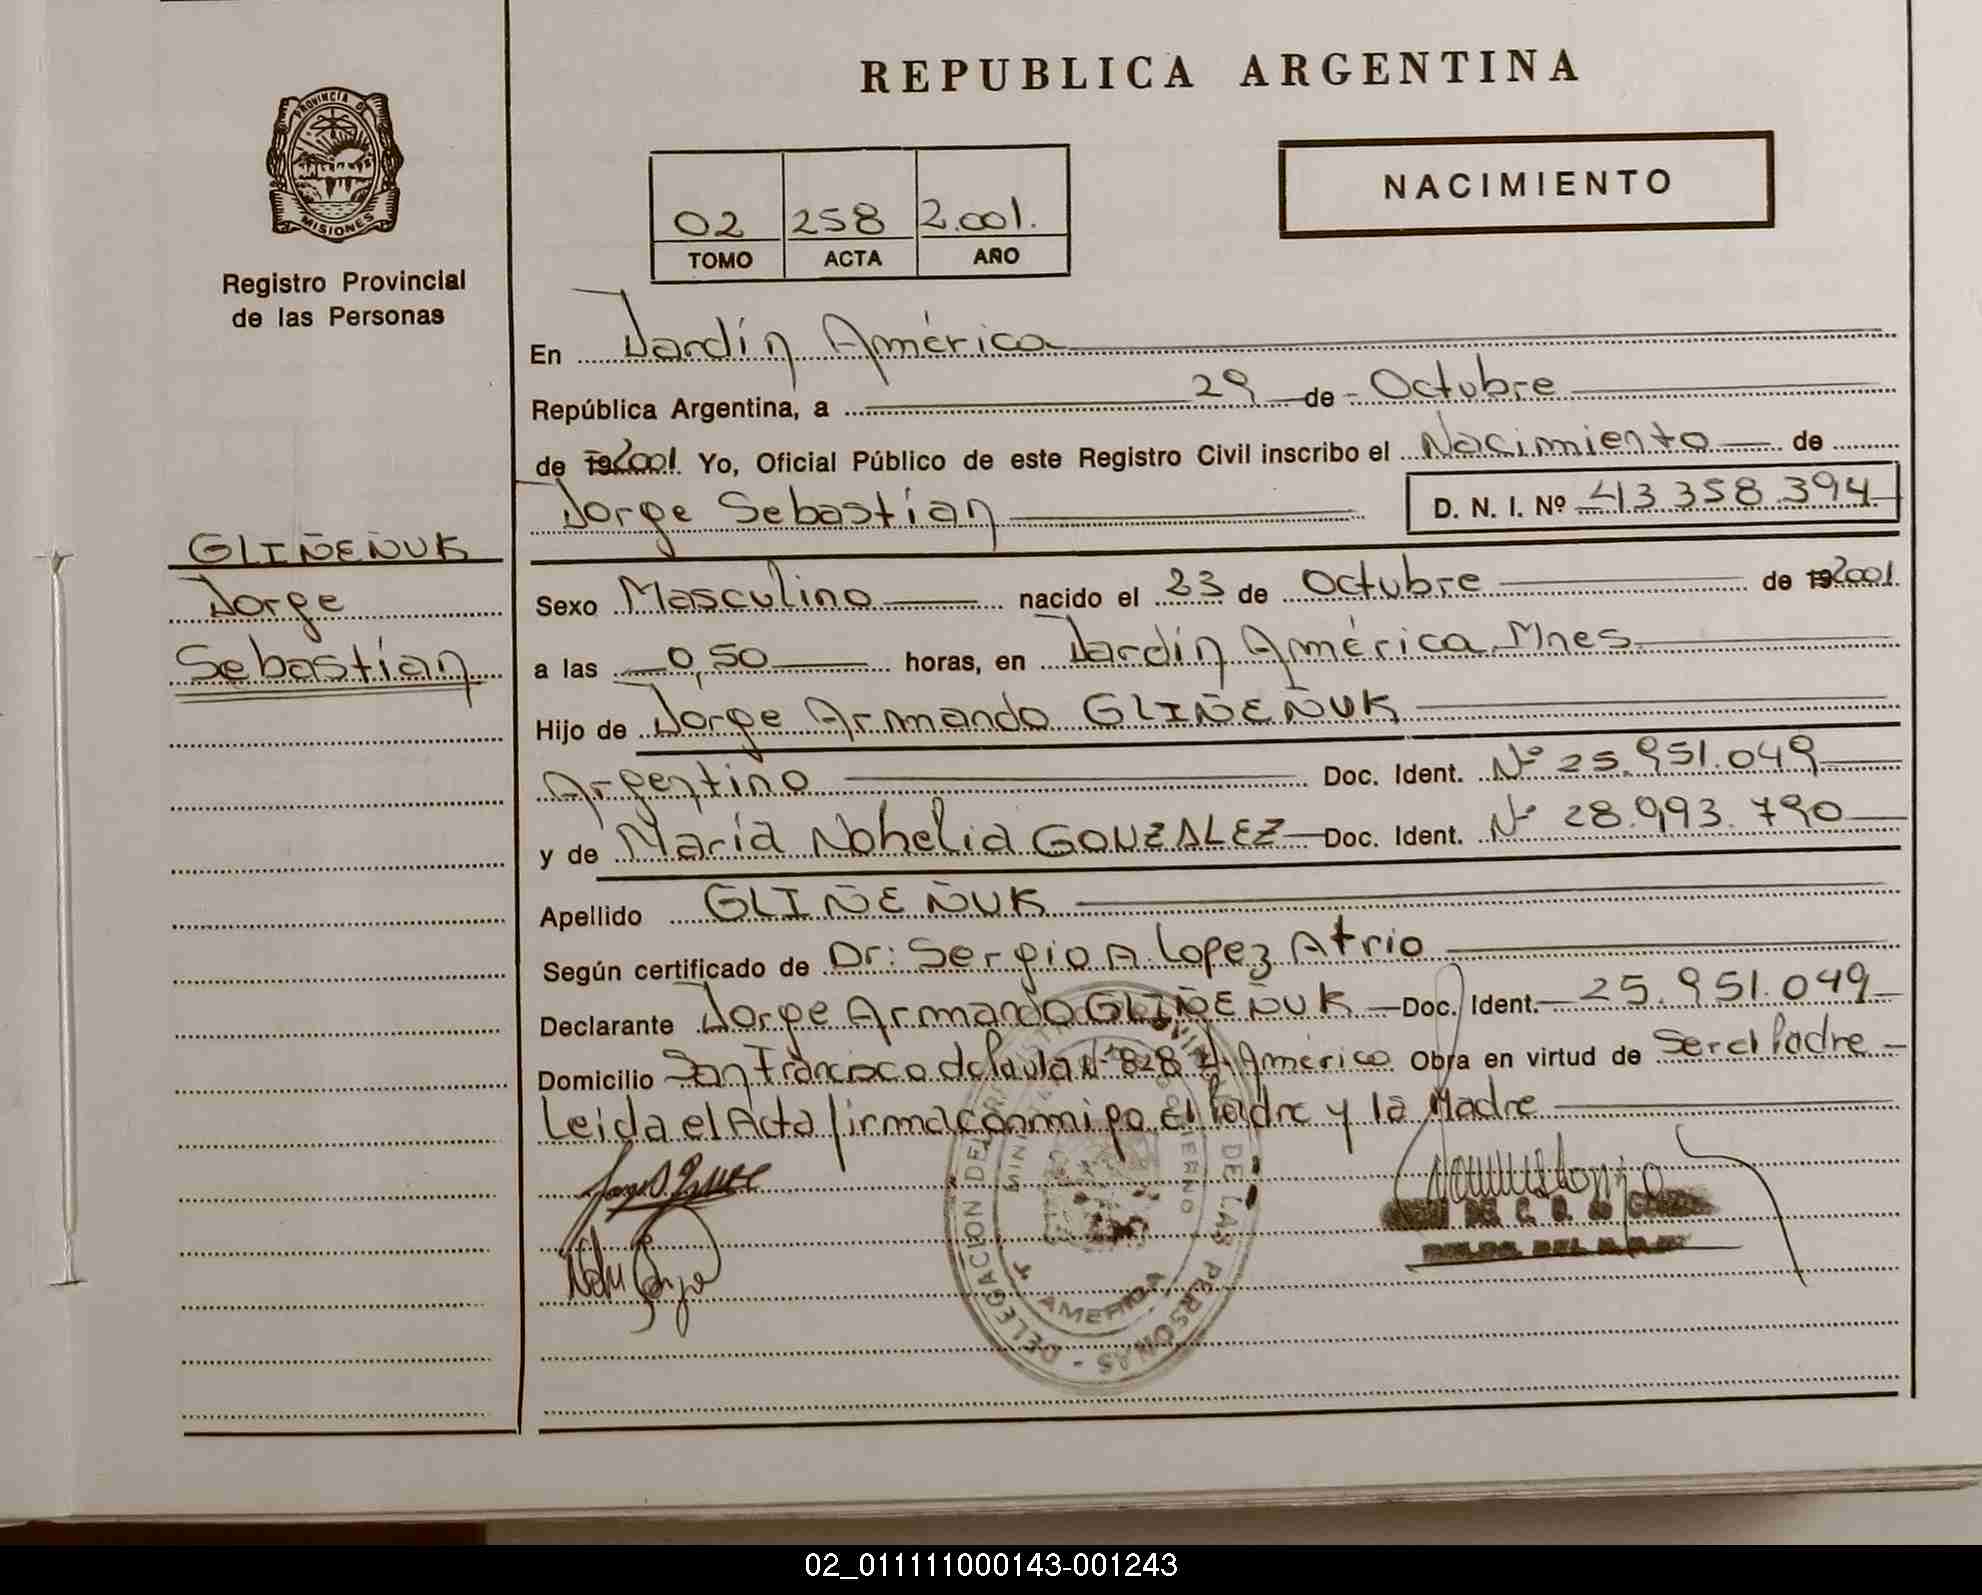 REPUBLICA ARGENTINA
NACIMIENTO
02 258 2.001.
TOMO ACTA AÑO
PROVINCIA DE MISIONES
Registro Provincial
de las Personas
En Jardín América
República Argentina, a 29 de Octubre
de 19 2001. Yo, Oficial Público de este Registro Civil inscribo el Nacimiento de
Jorge Sebastían D. N. I. Nº 43.358.394
GLIÑEÑUK
Jorge
Sebastían
Sexo Masculino nacido el 23 de Octubre de 19 2001.
a las 0,50 horas, en Jardín América Mnes.
Hijo de Jorge Armando GLIÑEÑUK
Argentino Doc. Ident. Nº 25.951.049
y de María Nohelia GONZALEZ Doc. Ident. Nº 28.993.790
Apellido GLIÑEÑUK
Según certificado de Dr: Sergio A. Lopez Atrio
Declarante Jorge Armando GLIÑEÑUK Doc. Ident. 25.951.049
Domicilio San Francisco de Paula Nº 828 J. América Obra en virtud de Ser el Padre
Leida el Acta firma conmigo El Padre y la Madre
DELEGACION DE LAS PERSONAS
AMERICA
02_011111000143-001243